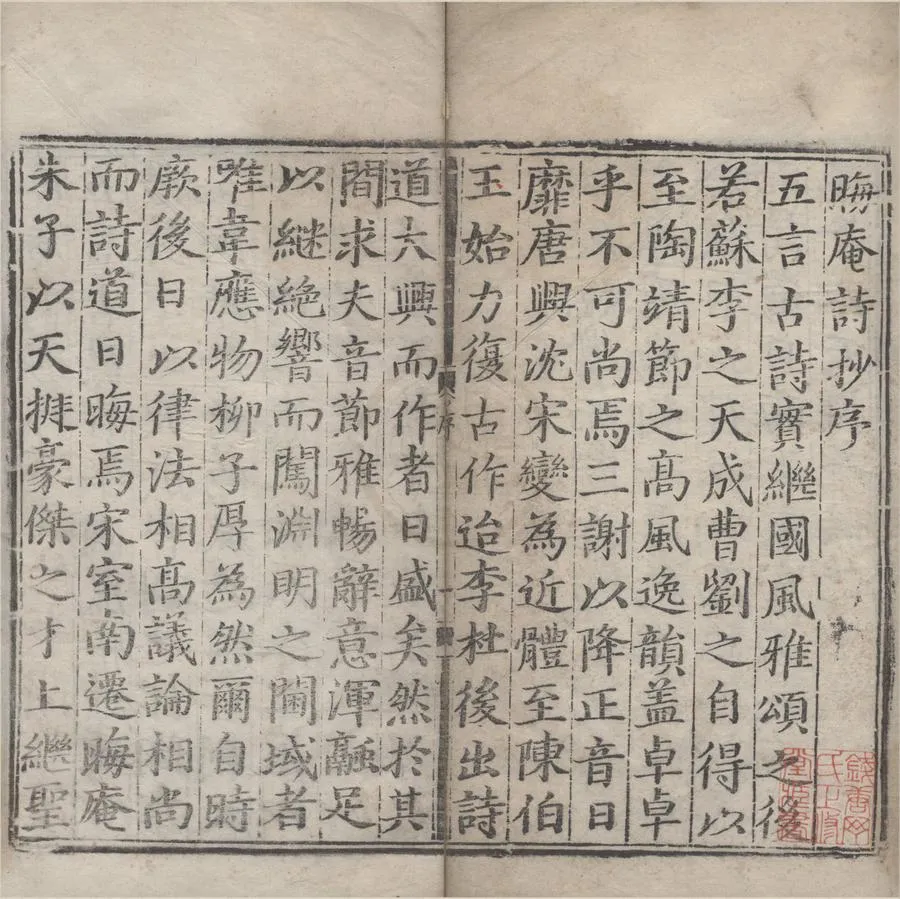 晦庵詩抄序
五言古詩實繼國風雅頌之後
若蘇李之天成曹劉之自得以
至陶靖節之髙風逸韻盖卓卓
乎不可尚焉三謝以降正音日
靡唐興沈宋變為近體至陳伯
玉始力復古作迨李杜後出詩
道大興而作者日盛矣然於其
間求夫音節雅暢辭意渾融足
以継絶響而闖淵明之閫域者
唯韋應物柳子厚為然爾自時
厥後日以律法相髙議論相尚
而詩道日晦焉宋室南遷晦庵
朱子以天挺豪傑之才上繼聖
序